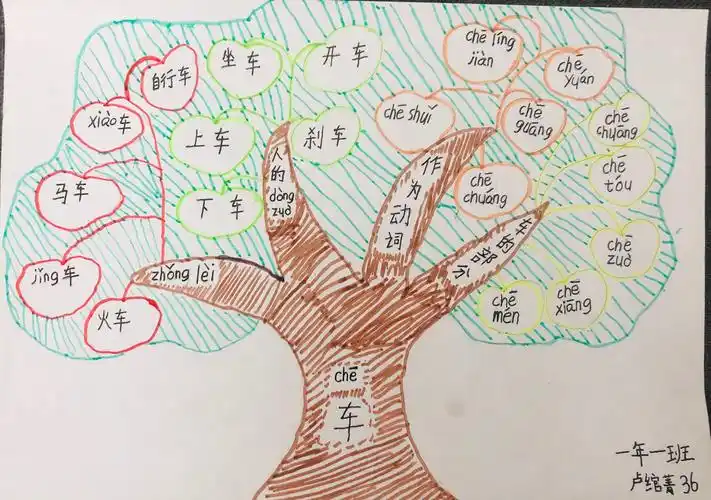 自行车
xiào车
马车
jǐng车
火车
zhóng lèi
坐车
开车
上车
刹车
下车
人的
dòng
zuò
chē líng
jiàn
chē
yuán
chē shuǐ
chē
guāng
chē
chuáng
作为动词
chē
chuāng
chē
tóu
chē
zuò
chē
xiāng
chē
mén
车的部分
chē
车
一年一班
卢绾菁 36